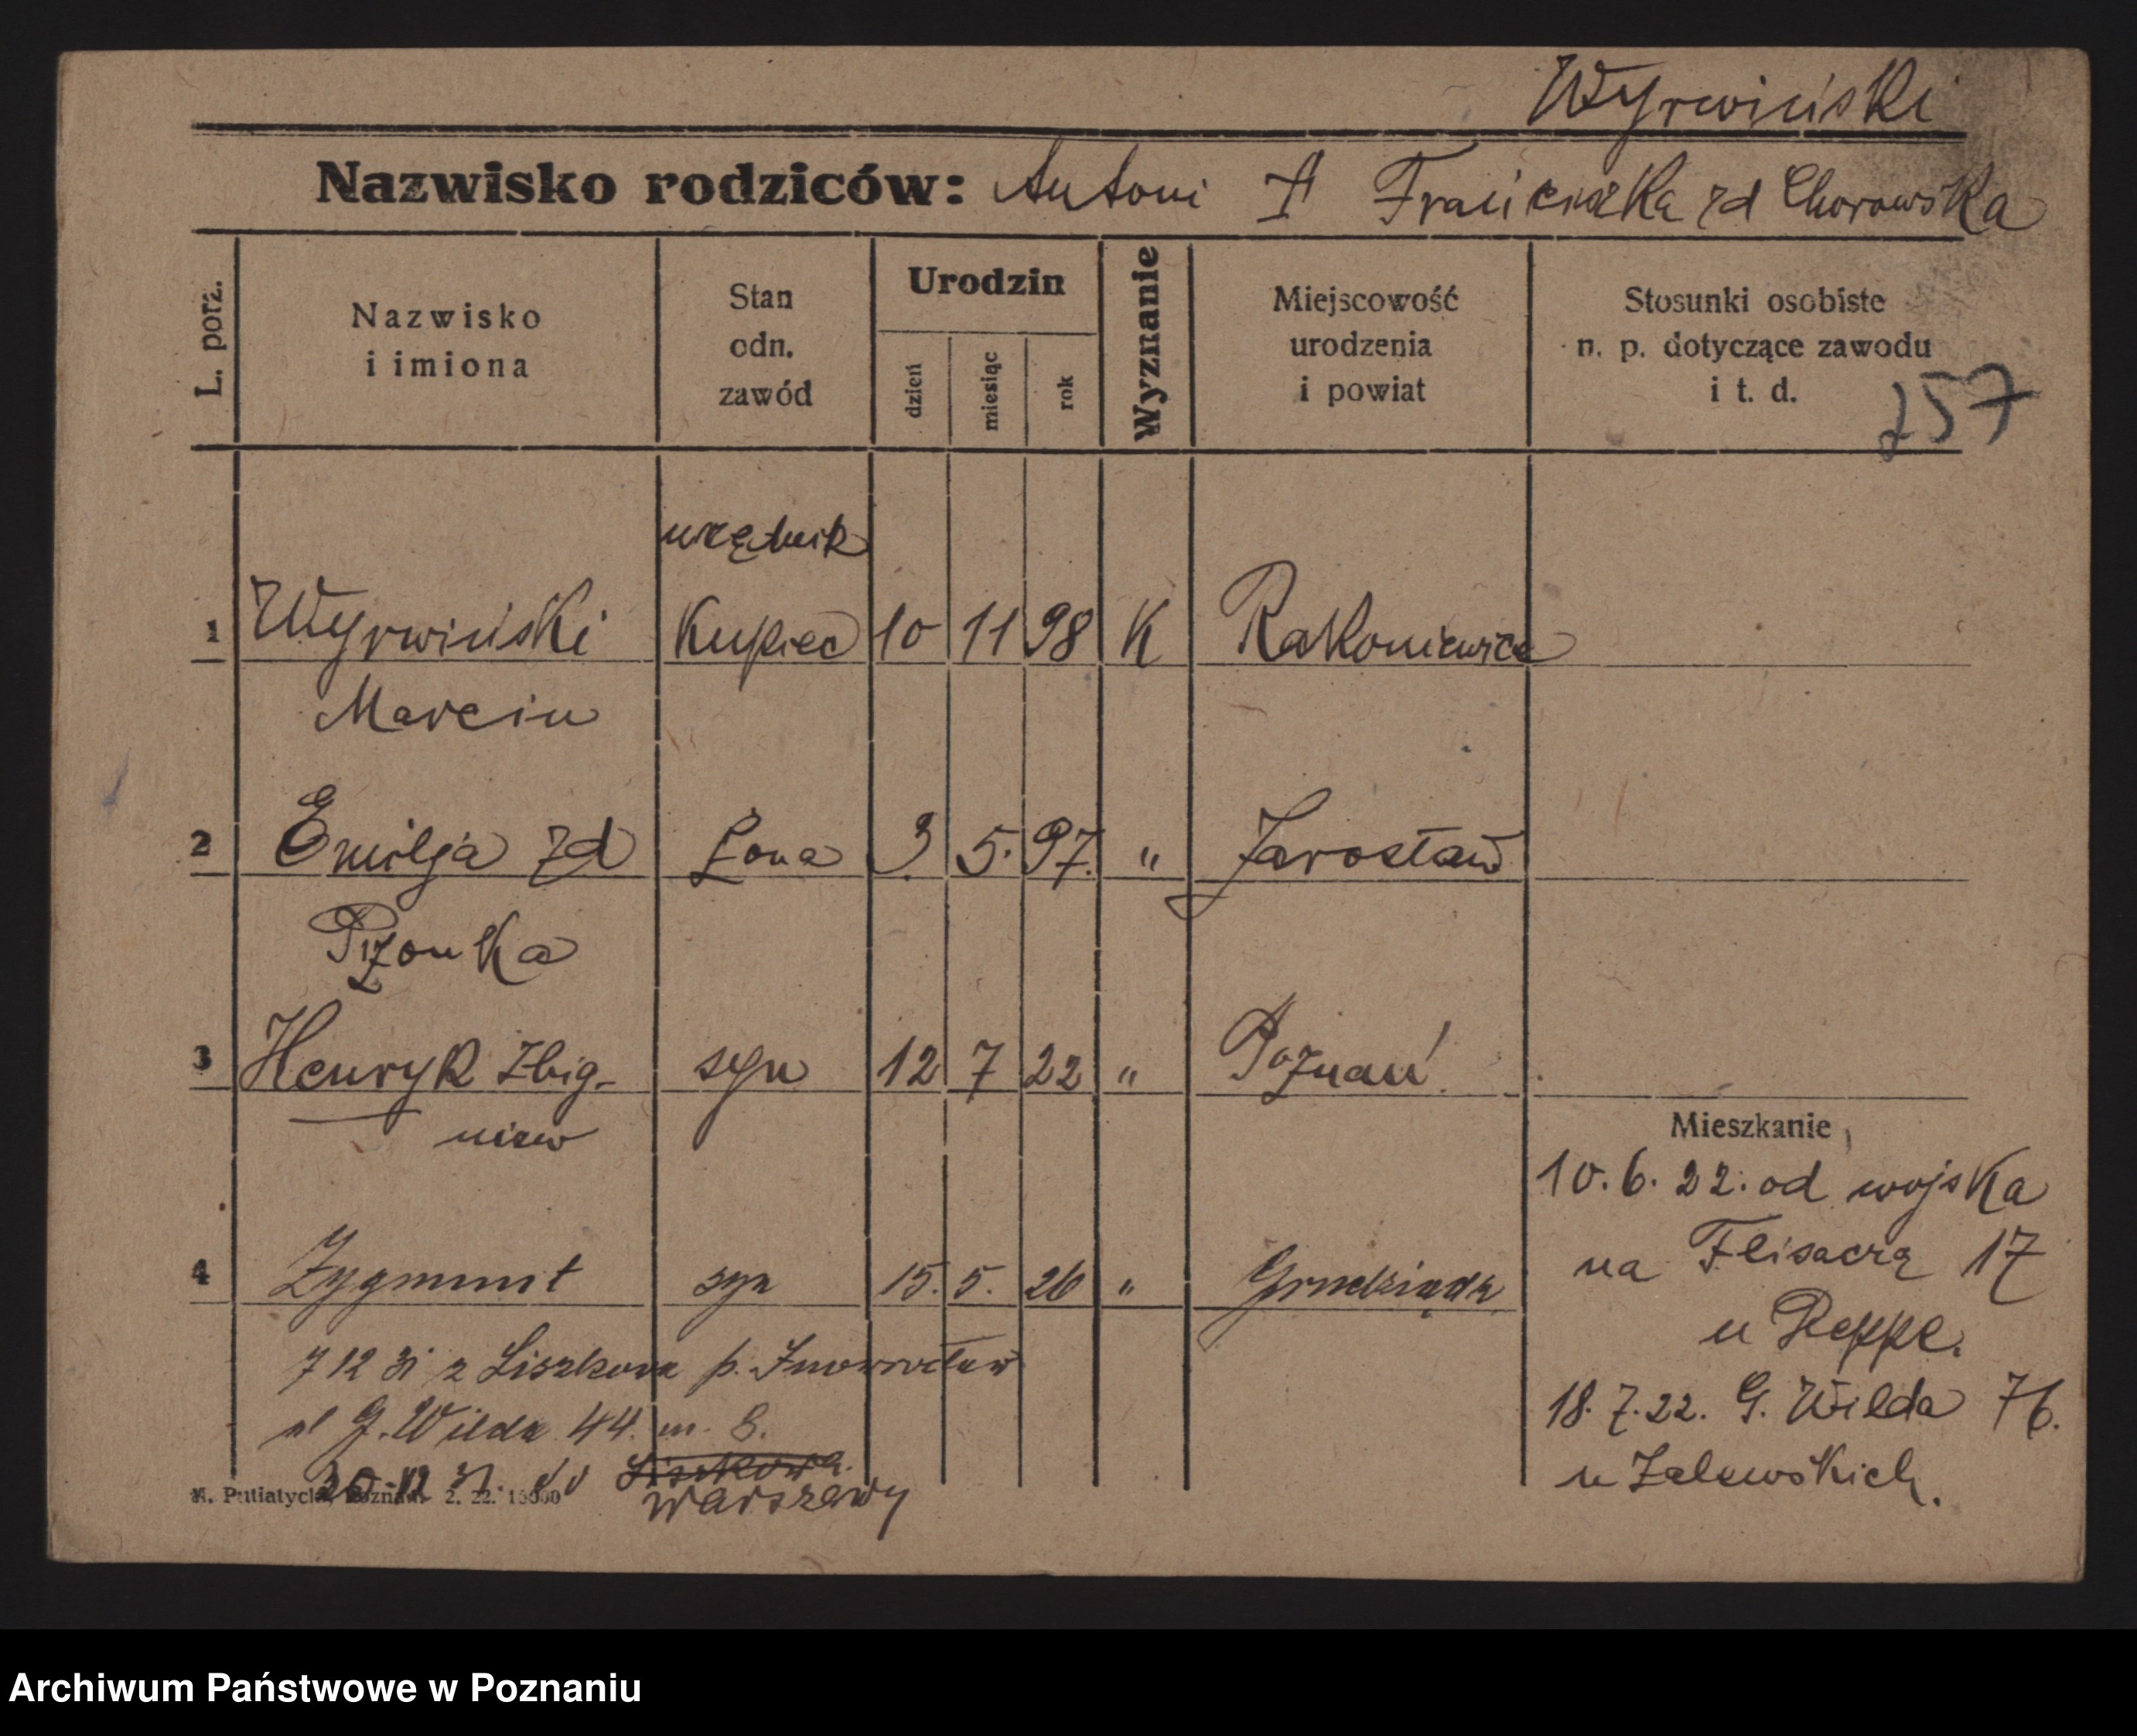 Wyrwiński
Nazwisko rodziców: Antoni † Franciszka zd Chorowska
L. porz.
Nazwisko
i imiona
Stan
odn.
zawód
Urodzin
dzień
miesiąc
rok
Wyznanie
Miejscowość
urodzenia
i powiat
Stosunki osobiste
n. p. dotyczące zawodu
i t. d.
757
urzędnik
1 Wyrwiński Kupiec 10 11 98 K Rakoniewice
Marcin
2 Emilja zd Żona 3. 5. 97. " Jarosław
Pżonka
3 Henryk Zbig- syn 12 7 22 " Poznań
niew
4 Zygmunt syn 15. 5. 26 " Grudziądz
Mieszkanie
10. 6. 22. od wojska
na Flisaczą 17
u Reppe.
18. 7. 22. G. Wilda 76.
u Zalewskich.
7 12 31 z Liszkowa p. Inowrocław
ul G. Wilda 44. m. 8.
20 12 31. do Liszkowa.
Warszawy
Putiatycki, Poznań. 2. 22. 15000
Archiwum Państwowe w Poznaniu